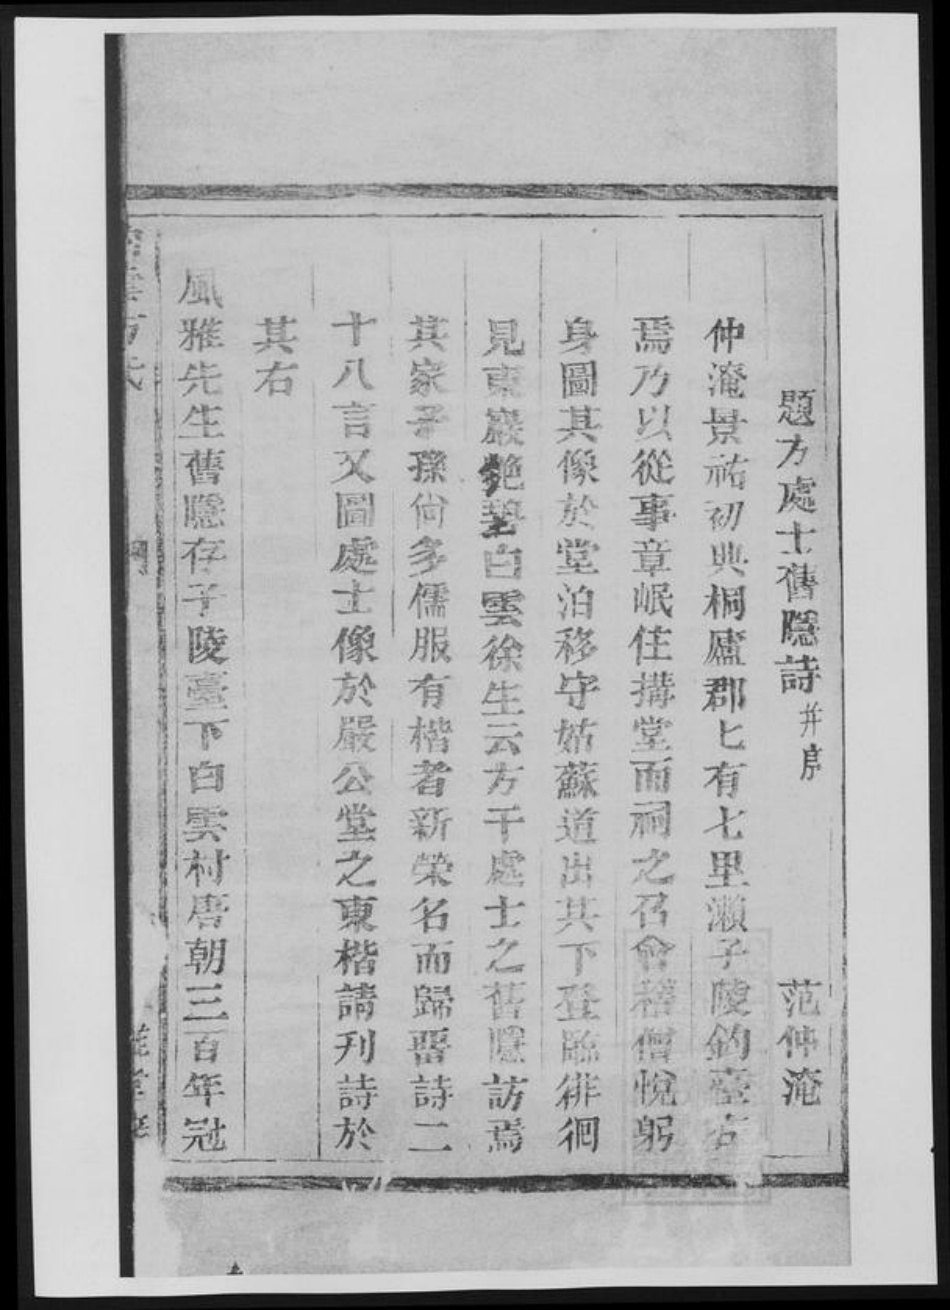 題方處士舊隱詩并序 范仲淹
仲淹景祐初典桐廬郡七有七里瀨子陵釣臺古
焉乃以從事章岷往搆堂而祠之召會稽僧悅躬
身圖其像於堂洎移守姑蘇道出其下登臨徘徊
見東巖絶碧白雲徐生云方干處士之舊隱訪焉
其家子孫尚多儒服有楷者新榮名而歸畱詩二
十八言又圖處士像於嚴公堂之東楷請刊詩於
其右
風雅先生舊隱存子陵臺下白雲村唐朝三百年冠